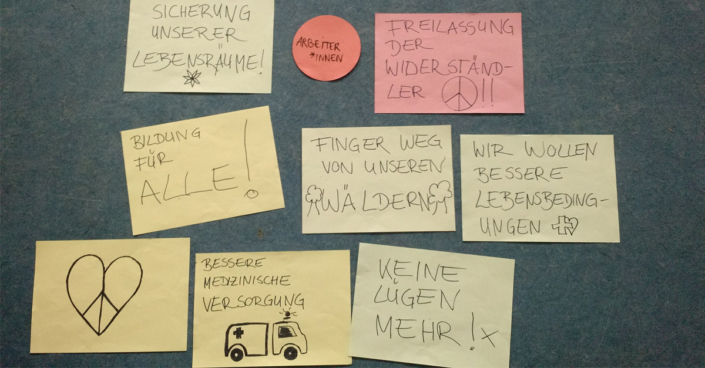 SICHERUNG
UNSERER
LEBENSRÄUME!
ARBEITER
*INNEN
FREILASSUNG
DER
WIDERSTÄND-
LER !!
BILDUNG
FÜR
ALLE!
FINGER WEG
VON UNSEREN
WÄLDERN
WIR WOLLEN
BESSERE
LEBENSBEDING-
UNGEN
BESSERE
MEDIZINISCHE
VERSORGUNG
KEINE
LÜGEN
MEHR!x